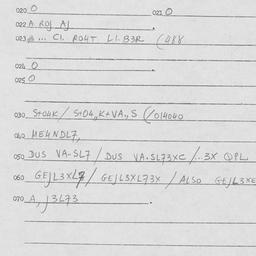 020 O 021 O
022 A ROJ AJ
023 ... CI. RO4T LI.B3R (488
024 O
025 O
030 S4O4K / S4O4, K+VA,,S (/014040
040 ME4NDL7,
050 DUS VA-SL7 / DUS VA.SL73XC /..3X QPL
060 GEJL3XL7 / GEJL3XL73X / ALSO GEJL3XE
070 A, J3L73